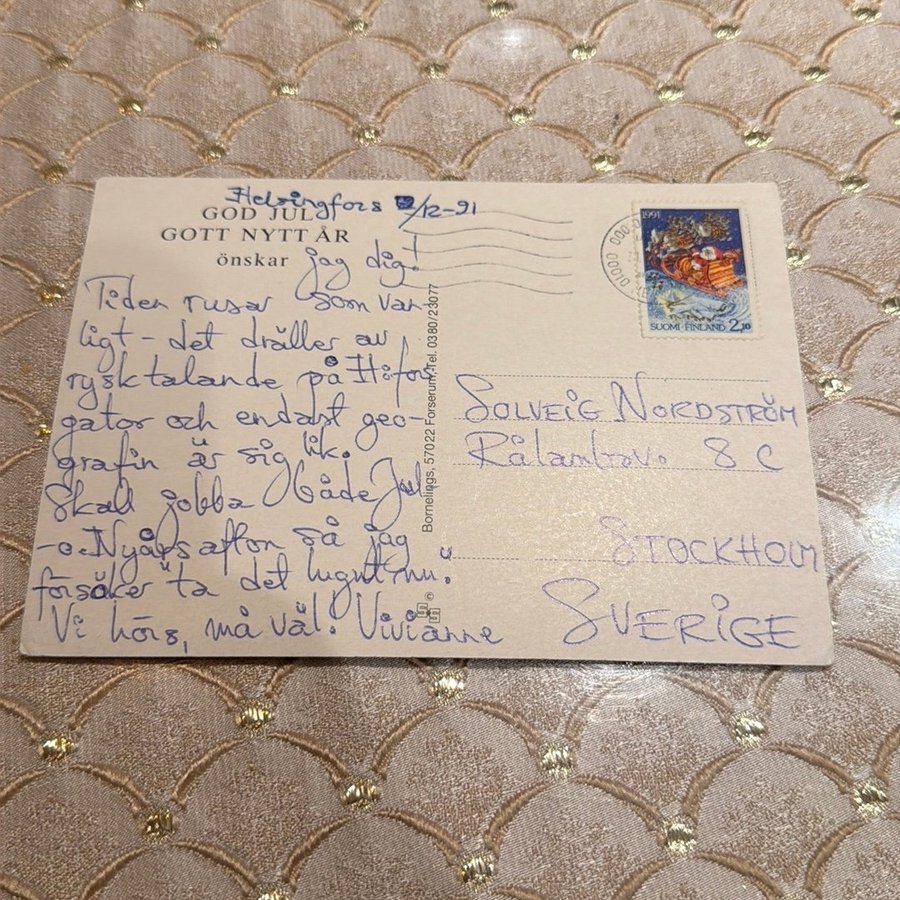 Helsingfors /12-91
GOD JUL
GOTT NYTT ÅR
önskar jag dig!
Tiden rusar som van-
ligt - det dräller av
rysktalande på H:fors
gator och endast geo-
grafin är sig lik.
Skall jobba både Jul-
-o. Nyårsafton så jag
försöker ta det lugnt nu.
Vi hörs, må väl! Vivianne
Bornelings, 57022 Forserum, Tel. 0380/23077
©
1991
SUOMI-FINLAND 2,10
SOLVEIG NORDSTRÖM
Rålambsv. 8 C
STOCKHOLM
SVERIGE